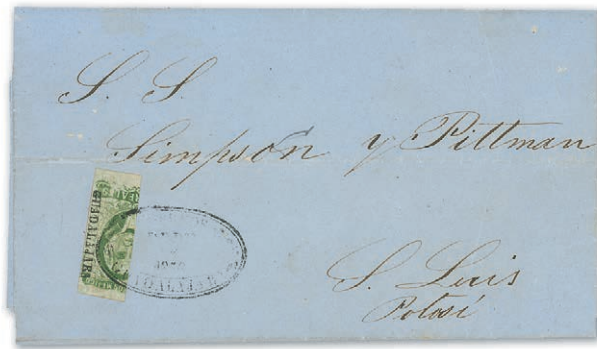 S. S.
Simpson y Pittman
GUADALAJARA
S. Luis
Potosí